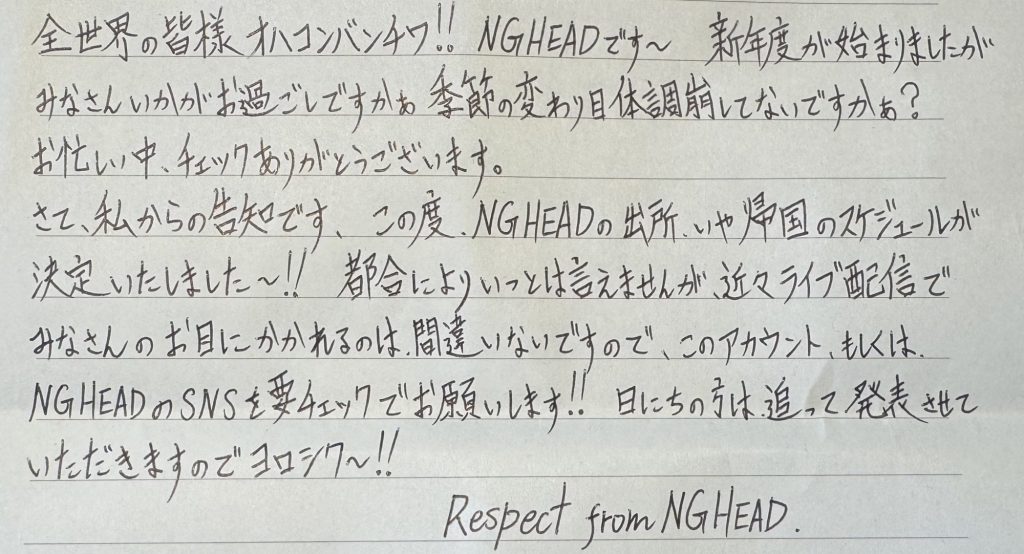 全世界の皆様オハコンバンチワ!! NGHEADです〜 新年度が始まりましたが
みなさんいかがお過ごしですかぁ 季節の変わり目体調崩してないですかぁ?
お忙しい中、チェックありがとうございます。
さて、私からの告知です、この度、NGHEADの出所、いや帰国のスケジュールが
決定いたしました〜!! 都合によりいつとは言えませんが、近々ライブ配信で
みなさんのお目にかかれるのは、間違いないですので、このアカウント、もしくは、
NGHEADのSNSを要チェックでお願いします!! 日にちの方は追って発表させて
いただきますのでヨロシク〜!!
Respect from NGHEAD.